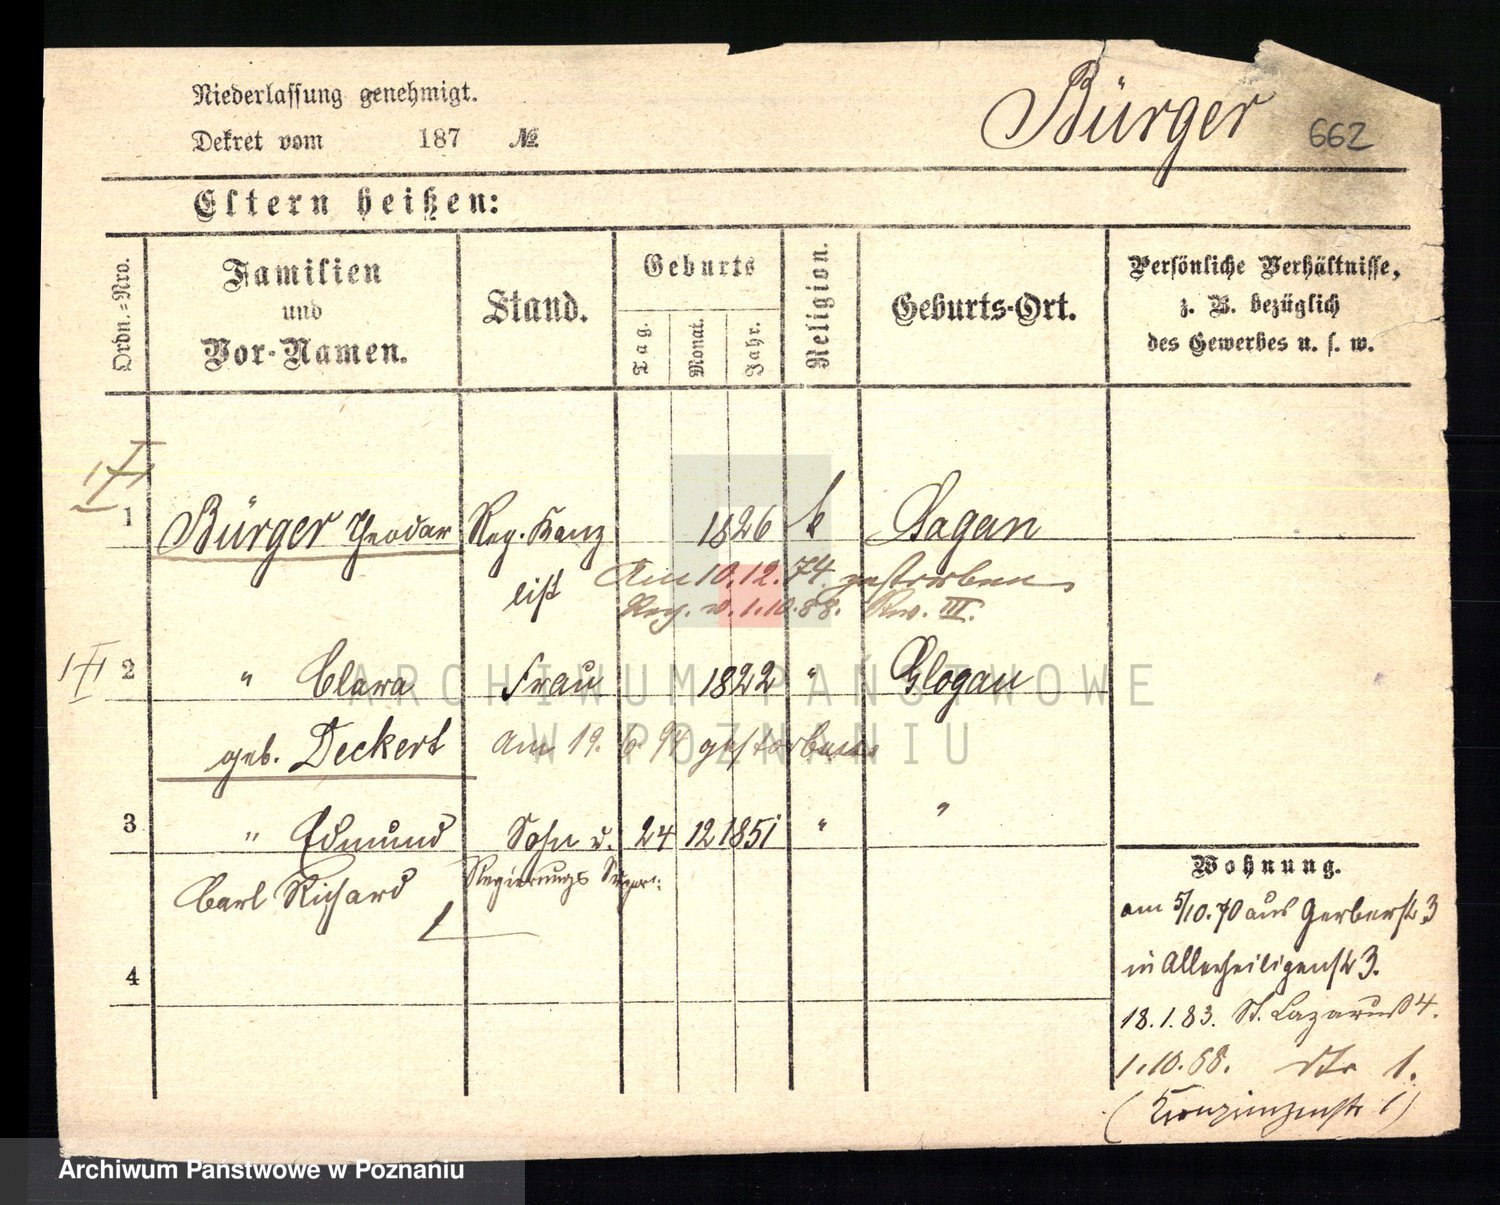 Niederlassung genehmigt.
Dekret vom 187 №
Bürger 662
Eltern heißen:
Ordn.-Nro.
Familien
und
Vor-Namen.
Stand.
Geburts
Tag.
Monat.
Jahr.
Religion.
Geburts-Ort.
Persönliche Verhältnisse,
z. B. bezüglich
des Gewerbes u. s. w.
1 Bürger Theodor Reg. Kanz 1826 k Sagan
list Am 10.12.74. gestorben
Reg. v. 1.10.88. Rev. III.
2 " Clara Frau 1822 " Glogau
geb. Deckert am 19. 6 94 gestorben
3 " Edmund Sohn u. 24 12 1851 " "
Carl Richard Regierungs
4
Wohnung.
am 5/10.70 aus Gerberstr 3
in Allerheiligenstr 3.
18.1.83. St. Lazarus 4.
1.10.88. dto 1.
(Kronprinzenstr 1)
ARCHIWUM PAŃSTWOWE
W POZNANIU
Archiwum Panstwowe w Poznaniu